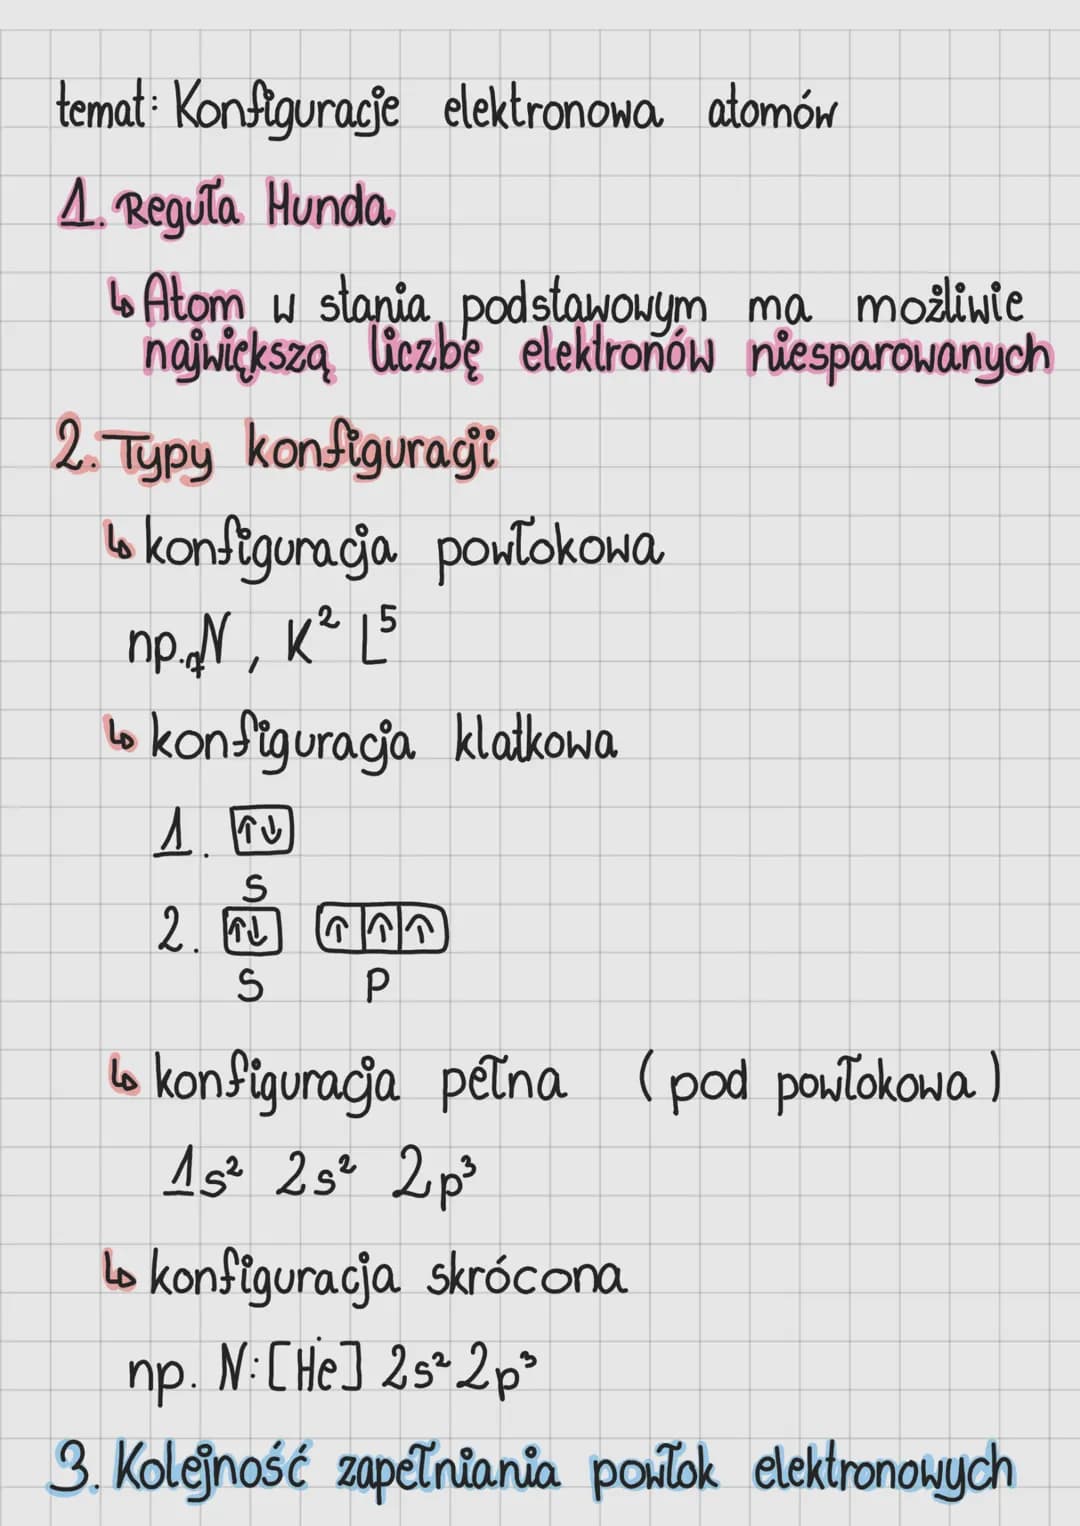 temat: Konfiguracje elektronowa atomów
1. Reguła Hunda
↳ Atom w stania podstawowym ma możliwie
największą liczbę elektronów niesparowanych
2. Typy konfiguracji
↳ konfiguracja powłokowa
np. ₇N, K² L⁵
↳ konfiguracja klatkowa
1. ↑↓
s
2. ↑↓ ↑ ↑ ↑
s p
↳ konfiguracja pełna (pod powłokowa)
1s² 2s² 2p³
↳ konfiguracja skrócona
np. N: [He] 2s² 2p³
3. Kolejność zapełniania powłok elektronowych